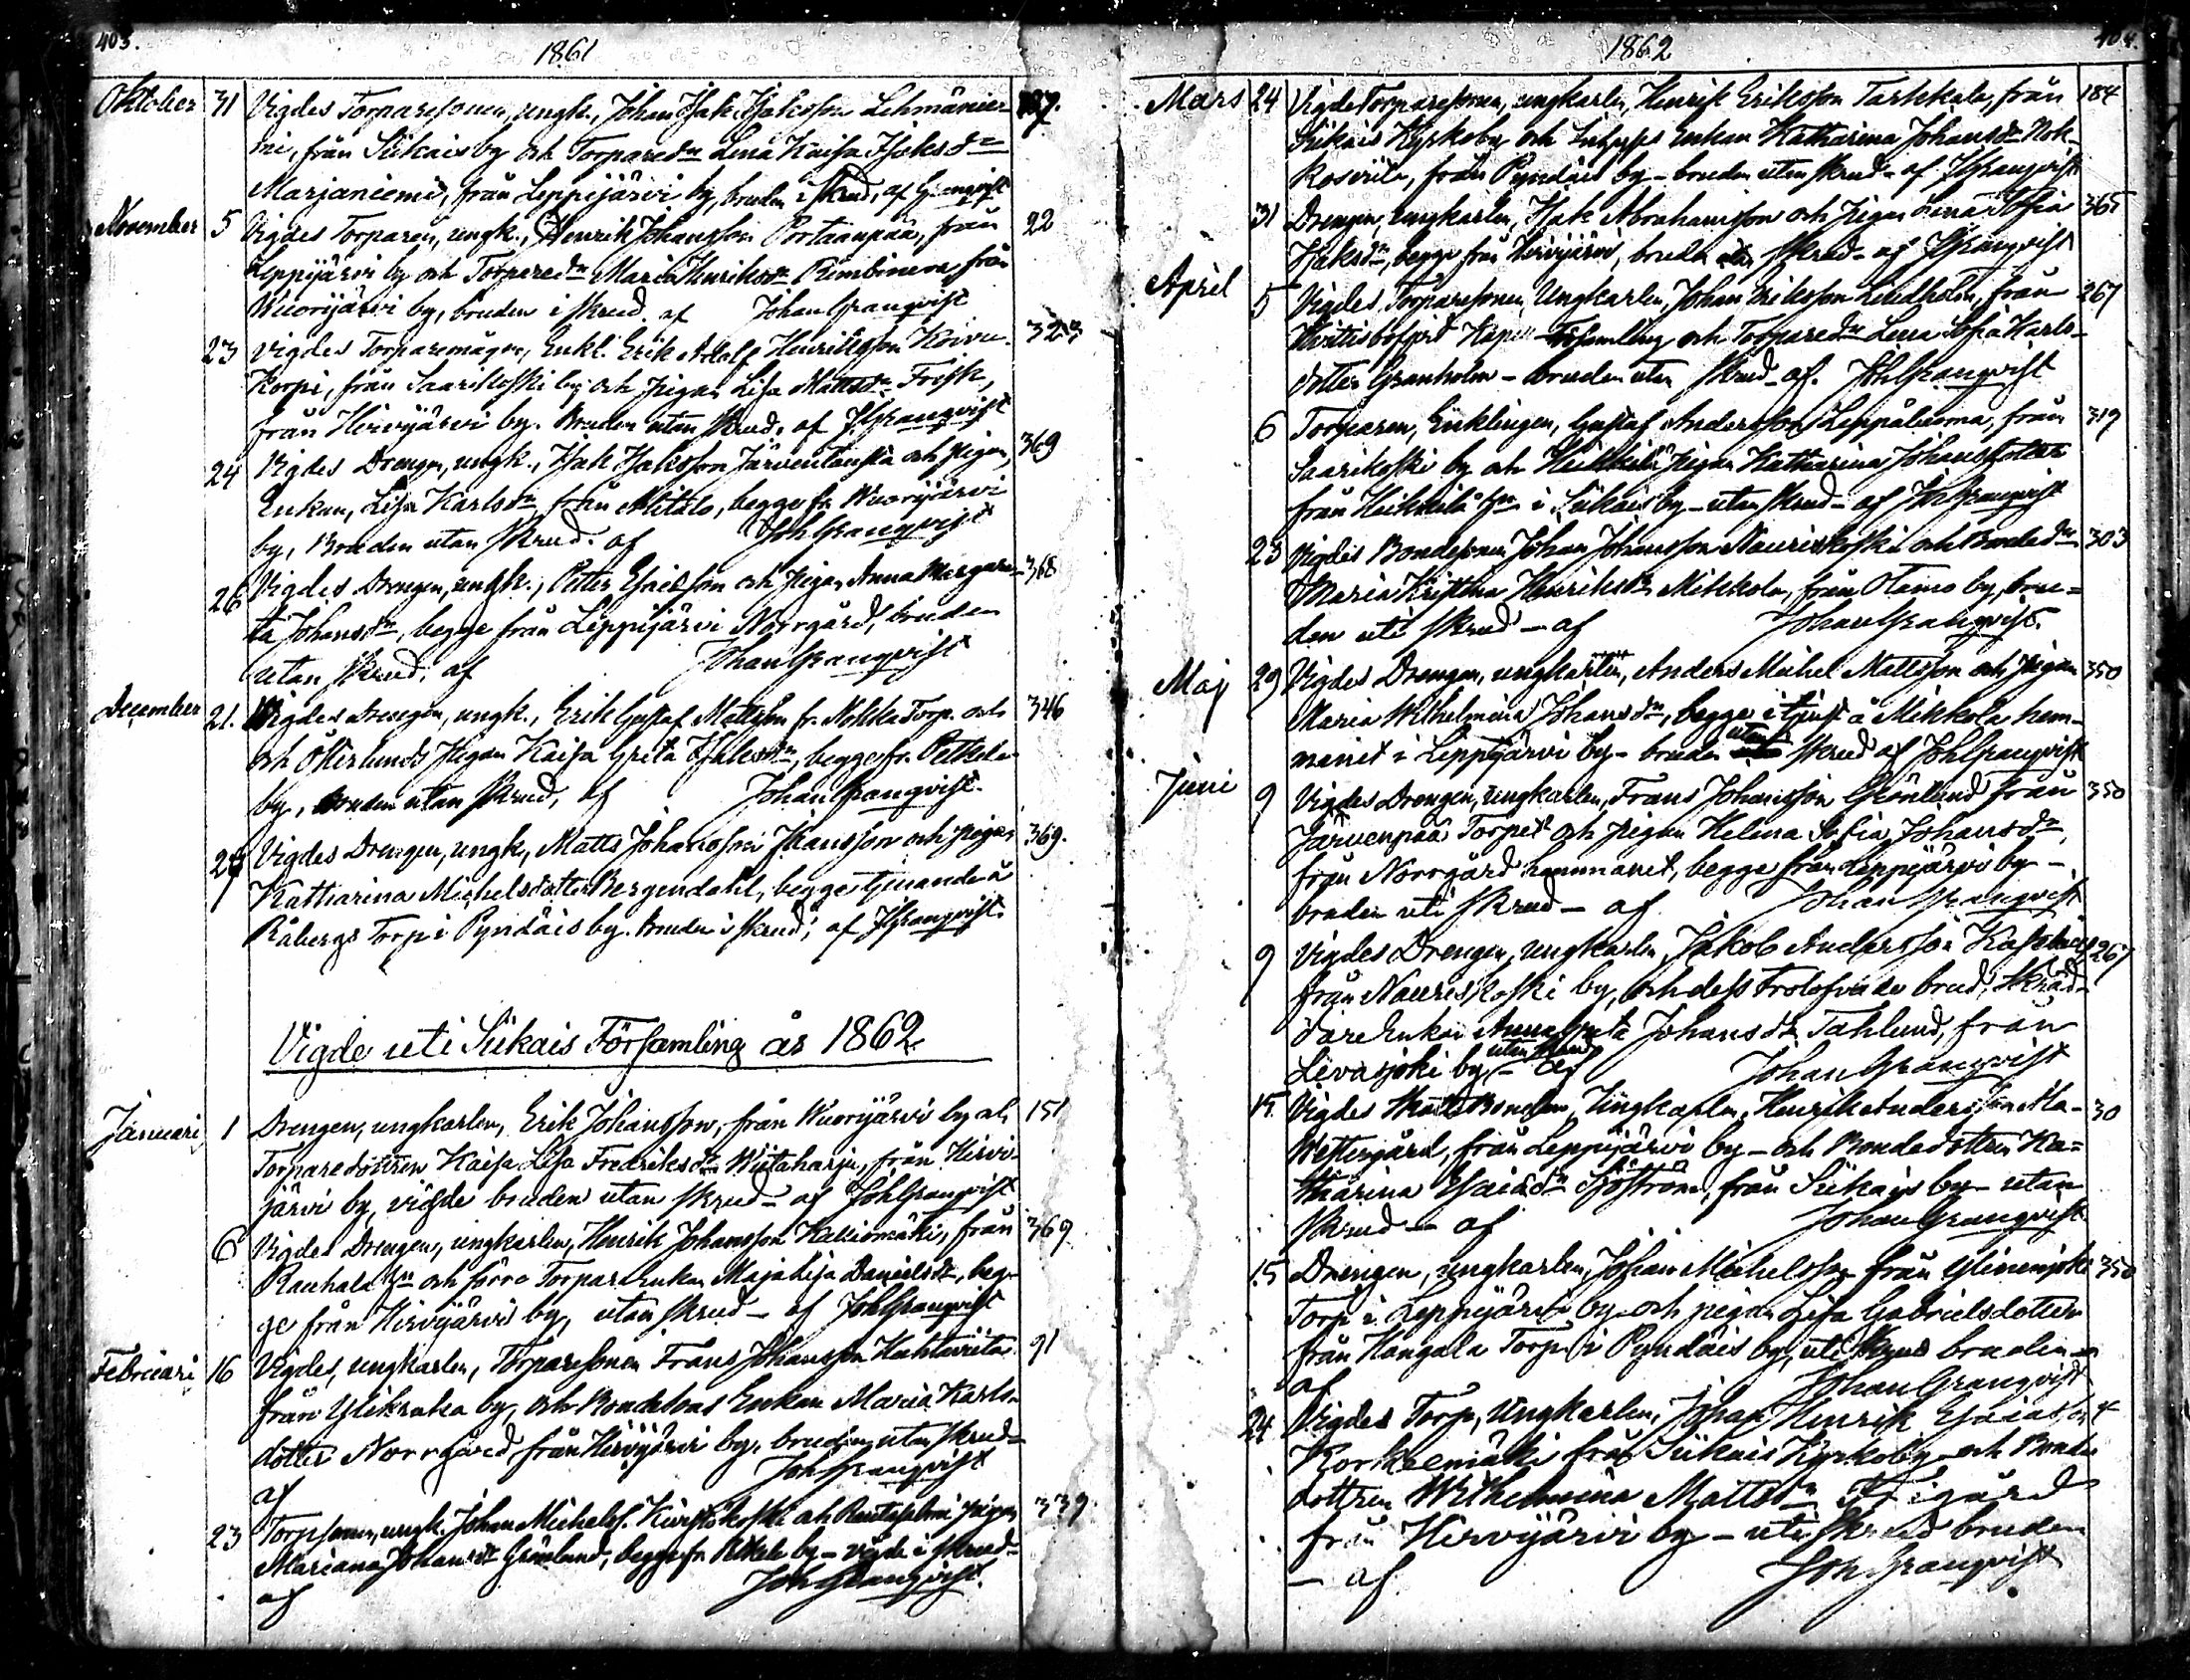 403.
1861
Oktober 31 Vigdes Torparesonen, ungk., Johan Isak Isaksson Lehmänie- 127.
mi, från Siikais by och Torparedr Lena Kajsa Isaksdr
Marjaniemi, från Leppijärvi by, bruden i skrud, af Granqvist
November 5 Vigdes Torparen, ungk., Henrik Johansson Portaanpää, från 22
Leppijärvi by och Torparedr Maria Henriksdr Rimbinen, från
Wuorijärvi by, bruden i skrud. af Johan Granqvist
23 Vigdes Torparemågen, Enkl. Erik Adolf Henriksson Koivu- 323
korpi, från Saarikoski by och pigan Lisa Mattsdr Frisk,
från Hirvijärvi by. Bruden utan skrud. af J Granqvist
24 Vigdes Drengen, ungk., Isak Isaksson Järventausta och pigan, 369
Enkan, Lisa Karlsdr från Mitalo, begge fr. Wuorijärvi
by, Bruden utan skrud. af Joh Granqvist
26 Vigdes Drengen, ungk., Petter Esaisson och pigan Anna Margare- 368
ta Johansdr, begge från Leppijärvi Norrgård, bruden
utan skrud, af Johan Granqvist
December 21. Vigdes Drengen, ungk., Erik Gustaf Mattsson fr. Nokka Torp. och 346
och Österlunds pigan Kajsa Greta Isaksdr, begge fr. Petkele
by, bruden utan skrud, af Johan Granqvist.
27 Vigdes Drengen, ungk, Matts Johansson Jkansson och pigan 369.
Katharina Michelsdotter Bergendahl, begge tjenande å
Råbergs Torp i Pyndäis by. Bruden i skrud, af J Granqvist.
Vigde uti Siikais Församling år 1862
Januari 1 Drengen, ungkarlen, Erik Johansson, från Wuorijärvi by och 151
Torparedottren Kajsa Lisa Fredriksdr Wiitaharju, från Hirvi-
järvi by, vigde bruden utan skrud - af Joh Granqvist
6 Vigdes Drengen, ungkarlen, Henrik Johansson Kalliomäki, från 369
Rauhala hn och förra Torpar Enkan Maja Lisa Danielsdr, beg-
ge från Hirvijärvi by, utan skrud - af Joh Granqvist
Februari 16 Vigdes, ungkarlen, Torparesonen Frans Johansson Kahtaviita 91
från Ylikraka by, och Bondesons Enkan Maria Karls-
dotter Norrgård från Hirvijärvi by, bruden utan skrud -
af Joh Granqvist
23 Torpsonen, ungk. Johan Michelss. Kuristokoski och pigan 339
Mariana Johansdr Grönlund, begge fr. Petkele by - vigde i skrud -
af Joh Granqvist.
404.
1862
Mars 24 Vigde Torparesonen, ungkarlen, Henrik Eriksson Tarkkala, från 184
Siikais Kyrkoby och Enkan Katharina Johansdr Nok-
koserila, från Pyndäis by - bruden utan skrud - af J Granqvist
31 Drengen, ungkarlen, Isak Abrahamsson och pigan Lena Sofia 365
Isaksdr, begge från Hirvijärvi, bruden skrud - af J Granqvist
April 5 Vigdes Torparesonen, Ungkarlen, Johan Eriksson Lindholm, från 267
Kapell-Församling och Torparedr Lena Sofia Karls-
dotter Granholm - bruden utan skrud - af. Joh Granqvist
6 Torparen, Enklingen, Gustaf Andersson Leppäluoma, från 319
Saarikoski by och Heikkilä pigan Katharina Johansdotter
från Heikkilä hn i Siikais by - utan skrud - af Joh Granqvist
23 Vigdes Bondesonen Johan Johansson Nauriskoski och Bondedr 303
Maria Kristina Henriksdr Mikkola, från Otamo by, bru-
den uti skrud - af Johan Granqvist.
Maj 29 Vigdes Drengen, ungkarlen, Anders Michel Mattsson och pigan 350
Maria Wilhelmina Johansdr, begge i tjenst å Mikkola hem-
manet i Leppijärvi by - bruden utan skrud af Joh Granqvist
Juni 9 Vigdes Drengen, ungkarlen, Frans Johansson Grönlund från 350
Järvenpää Torpet och pigan Helena Sofia Johansdr,
från Norrgård hemmanet, begge från Leppijärvi by -
bruden uti skrud - af Johan Granqvist
9 Vigdes Drengen, ungkarlen Jakob Andersson 267
från Naurisskoski by, och dess trolofvade brud, Skräd-
dare Enkan Anna Greta Johansdr Tahlund, från
Levasjoki by utan skrud - af Johan Granqvist
15. Vigdes Bondeson, Ungkarlen, Henrik Andersson Ala- 30
Westergård, från Leppijärvi by - och Bondedottren Ka-
tharina Esaiædr Sjöström, från Siikais by - utan
skrud - af Johan Granqvist.
15 Drengen, ungkarlen, Johan Michelsson från Ylinenjoki 350
Torp i Leppijärvi by och pigan Lisa Gabrielsdotter
från Kangala Torp i Pyndäis by, uti skrud bruden -
af Johan Granqvist
24 Vigdes Torp, Ungkarlen, Johan Henrik Esaiass. 4
Korkeemäki från Siikais Kyrkoby och Bonde
dottren Wilhelmina Mattsdr
från Hirvijärvi by - uti skrud bruden
- af Joh. Granqvist